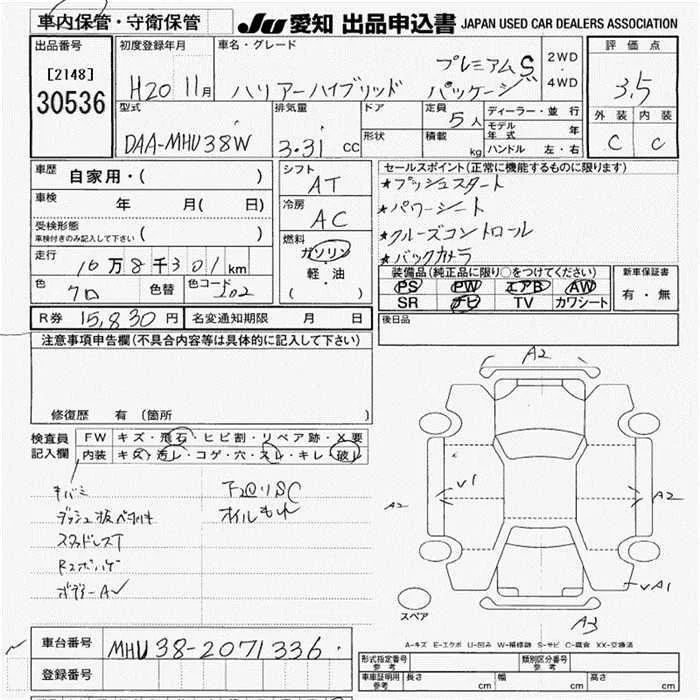 車内保管・守衛保管
JU 愛知 出品申込書 JAPAN USED CAR DEALERS ASSOCIATION
出品番号
[2148]
30536
初度登録年月
H20 11月
車名・グレード
ハリアーハイブリッド プレミアムS パッケージ
2WD
4WD
評価点
3.5
外装 内装
C C
型式
DAA-MHU38W
排気量
3.31 cc
ドア
形状
定員
5人
積載
kg
ディーラー・並行
モデル年式 年
ハンドル 左・右
車歴 自家用・( )
車検 年 月( 日)
受検形態
車検付きのみ記入して下さい ( )
走行 16万8千301km
色 クロ 色替 色コード 202
シフト
AT
冷房
AC
燃料
ガソリン
軽・油
( )
セールスポイント(正常に機能するものに限ります)
★プッシュスタート
★パワーシート
★クルーズコントロール
★バックカメラ
装備品(純正品に限り○をつけてください)
PS PW エアB AW
SR ナビ TV カワシート
新車保証書
有・無
R券 15,830円 名変通知期限 月 日
後日品
注意事項申告欄(不具合内容等は具体的に記入して下さい)
修復歴 有(箇所 )
検査員記入欄
FW キズ・飛石・ヒビ割・リペア跡・X要
内装 キズ・汚レ・コゲ・穴・スレ・キレ・破レ
キバミ
スタッドレスT
下回りSC
オイルもれ
A2
V1
A2
A2
A1
A3
スペア
A-キズ E-エクボ U-凹み W-補修跡 S-サビ C-腐食 XX-交換済
車台番号 MHU38-2071336
登録番号
形式指定番号 参考
類別区分番号 参考
車車証明用 参考 長さ cm 幅 cm 高さ cm